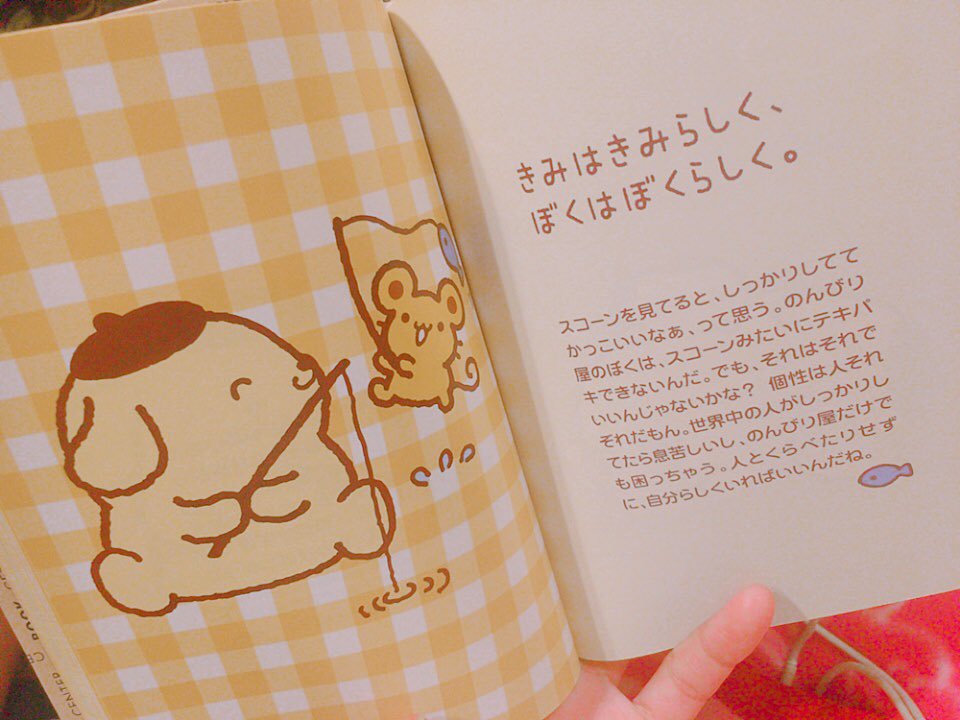 きみはきみらしく、
ぼくはぼくらしく。
スコーンを見てると、しっかりしてて
かっこいいなぁ、って思う。のんびり
屋のぼくは、スコーンみたいにテキパ
キできないんだ。でも、それはそれで
いいんじゃないかな？　個性は人それ
それだもん。世界中の人がしっかりし
てたら息苦しいし、のんびり屋だけで
も困っちゃう。人とくらべたりせず
に、自分らしくいればいいんだね。